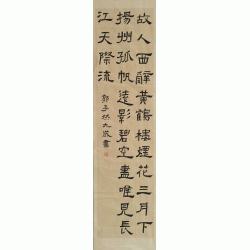 故人西辭黃鶴樓煙花三月下
揚州孤帆遠影碧空盡唯見長
江天際流
九歲書